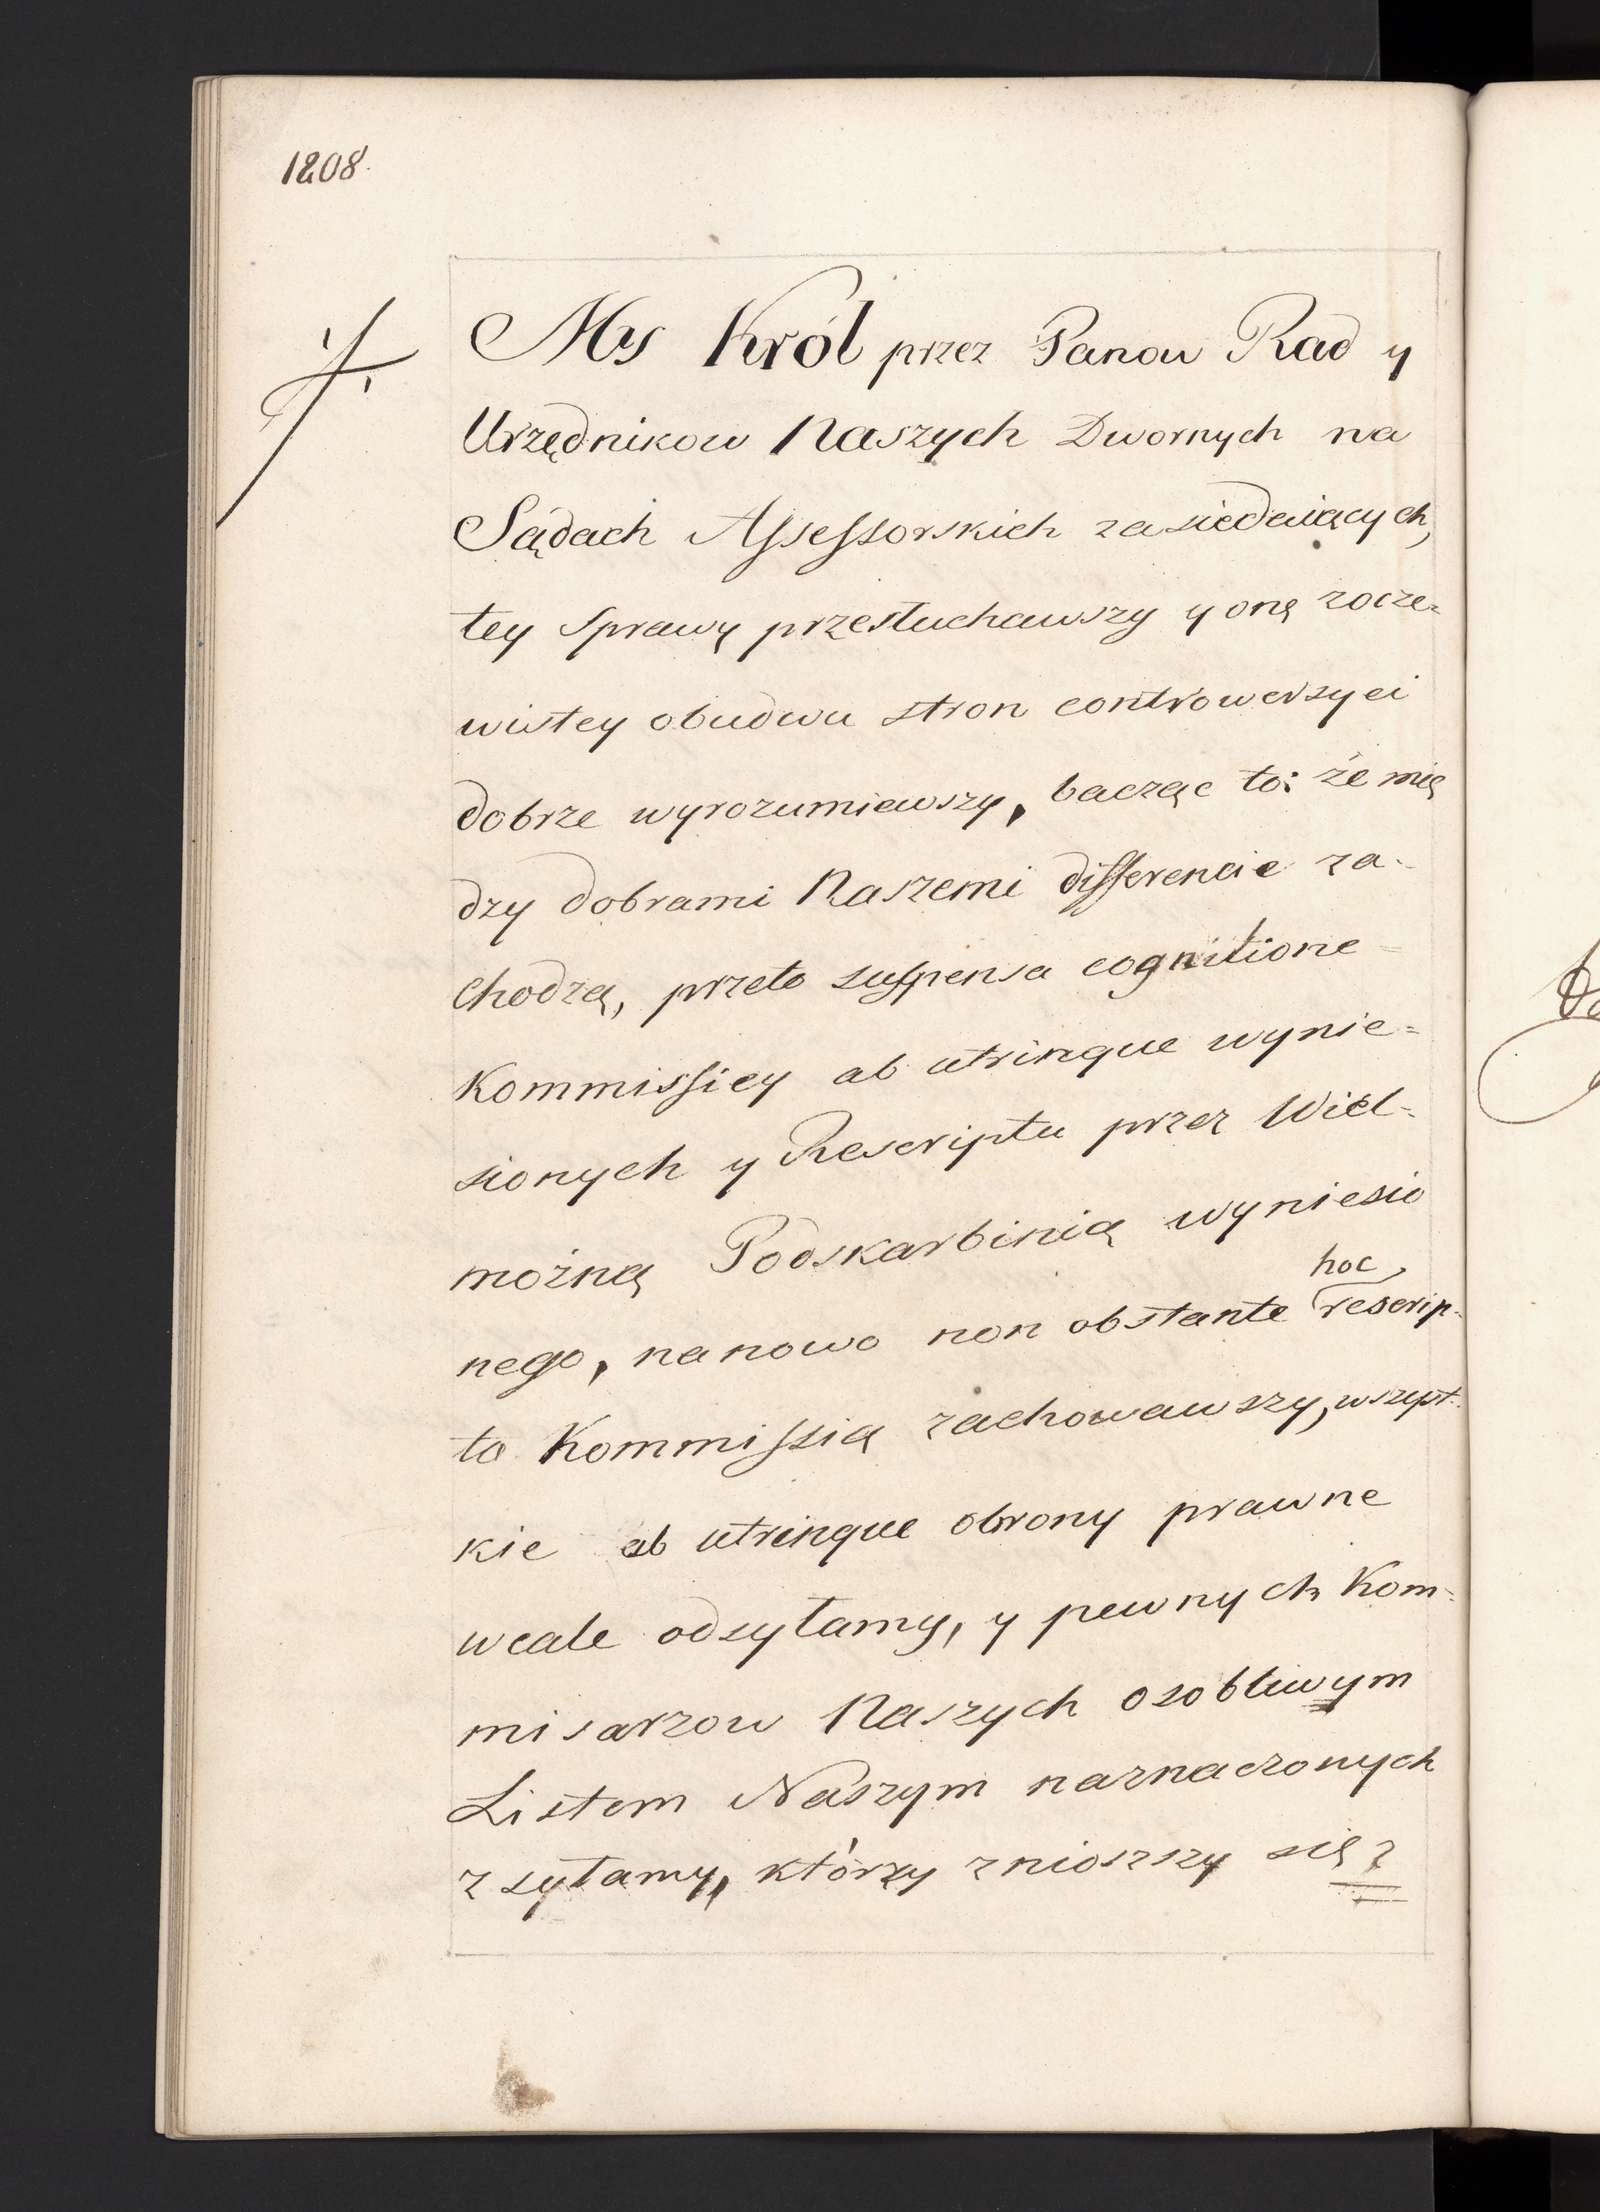 1208.
My Król przez Panow Rad y
Urzędnikow Naszych Dwornych na
Sądach Assessorskich zasiedaiących,
tey sprawy przesłuchawszy y onę zocze=
wistey obudwu stron controwersyei
dobrze wyrozumiawszy, bacząc to: że mię
dzy dobrami Naszemi differencie za-
chodzą, przeto suspensa cognitione
Kommissiey ab utrinque wynie=
sionych y Rescriptu przez Wiel=
możną Podskarbinią wyniesio
nego, na nowo non obstante hoc rescrip=
to Kommissią zachowawszy, wszyst=
kie ab utrinque obrony prawne
wcale odsyłamy, y pewnych Kom=
misarzow Naszych osobliwym
Listem Naszym naznaczonych
zsyłamy, którzy zniosszy się z